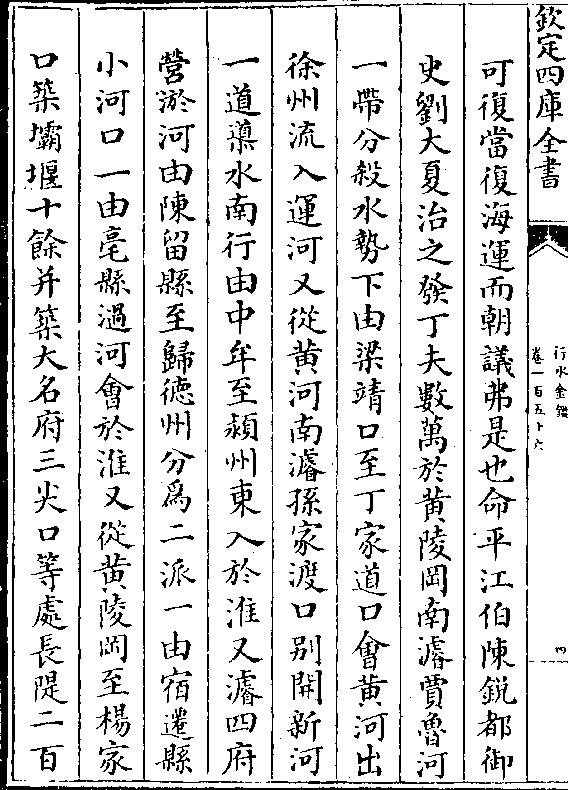 欽定四庫全書
行水金鑑
卷一百五十六
四
可復當復海運而朝議弗是也命平江伯陳鋭都御
史劉大夏治之發丁夫數萬於黄陵岡南濬賈魯河
一帶分殺水勢下由梁靖口至丁家道口會黄河出
徐州流入運河又從黄河南濬孫家渡口别開新河
一道導水南行由中牟至潁州東入於淮又濬四府
營淤河由陳留縣至歸德州分爲二派一由宿遷縣
小河口一由亳縣渦河會於淮又從黄陵岡至楊家
口築壩堰十餘并築大名府三尖口等處長隄二百